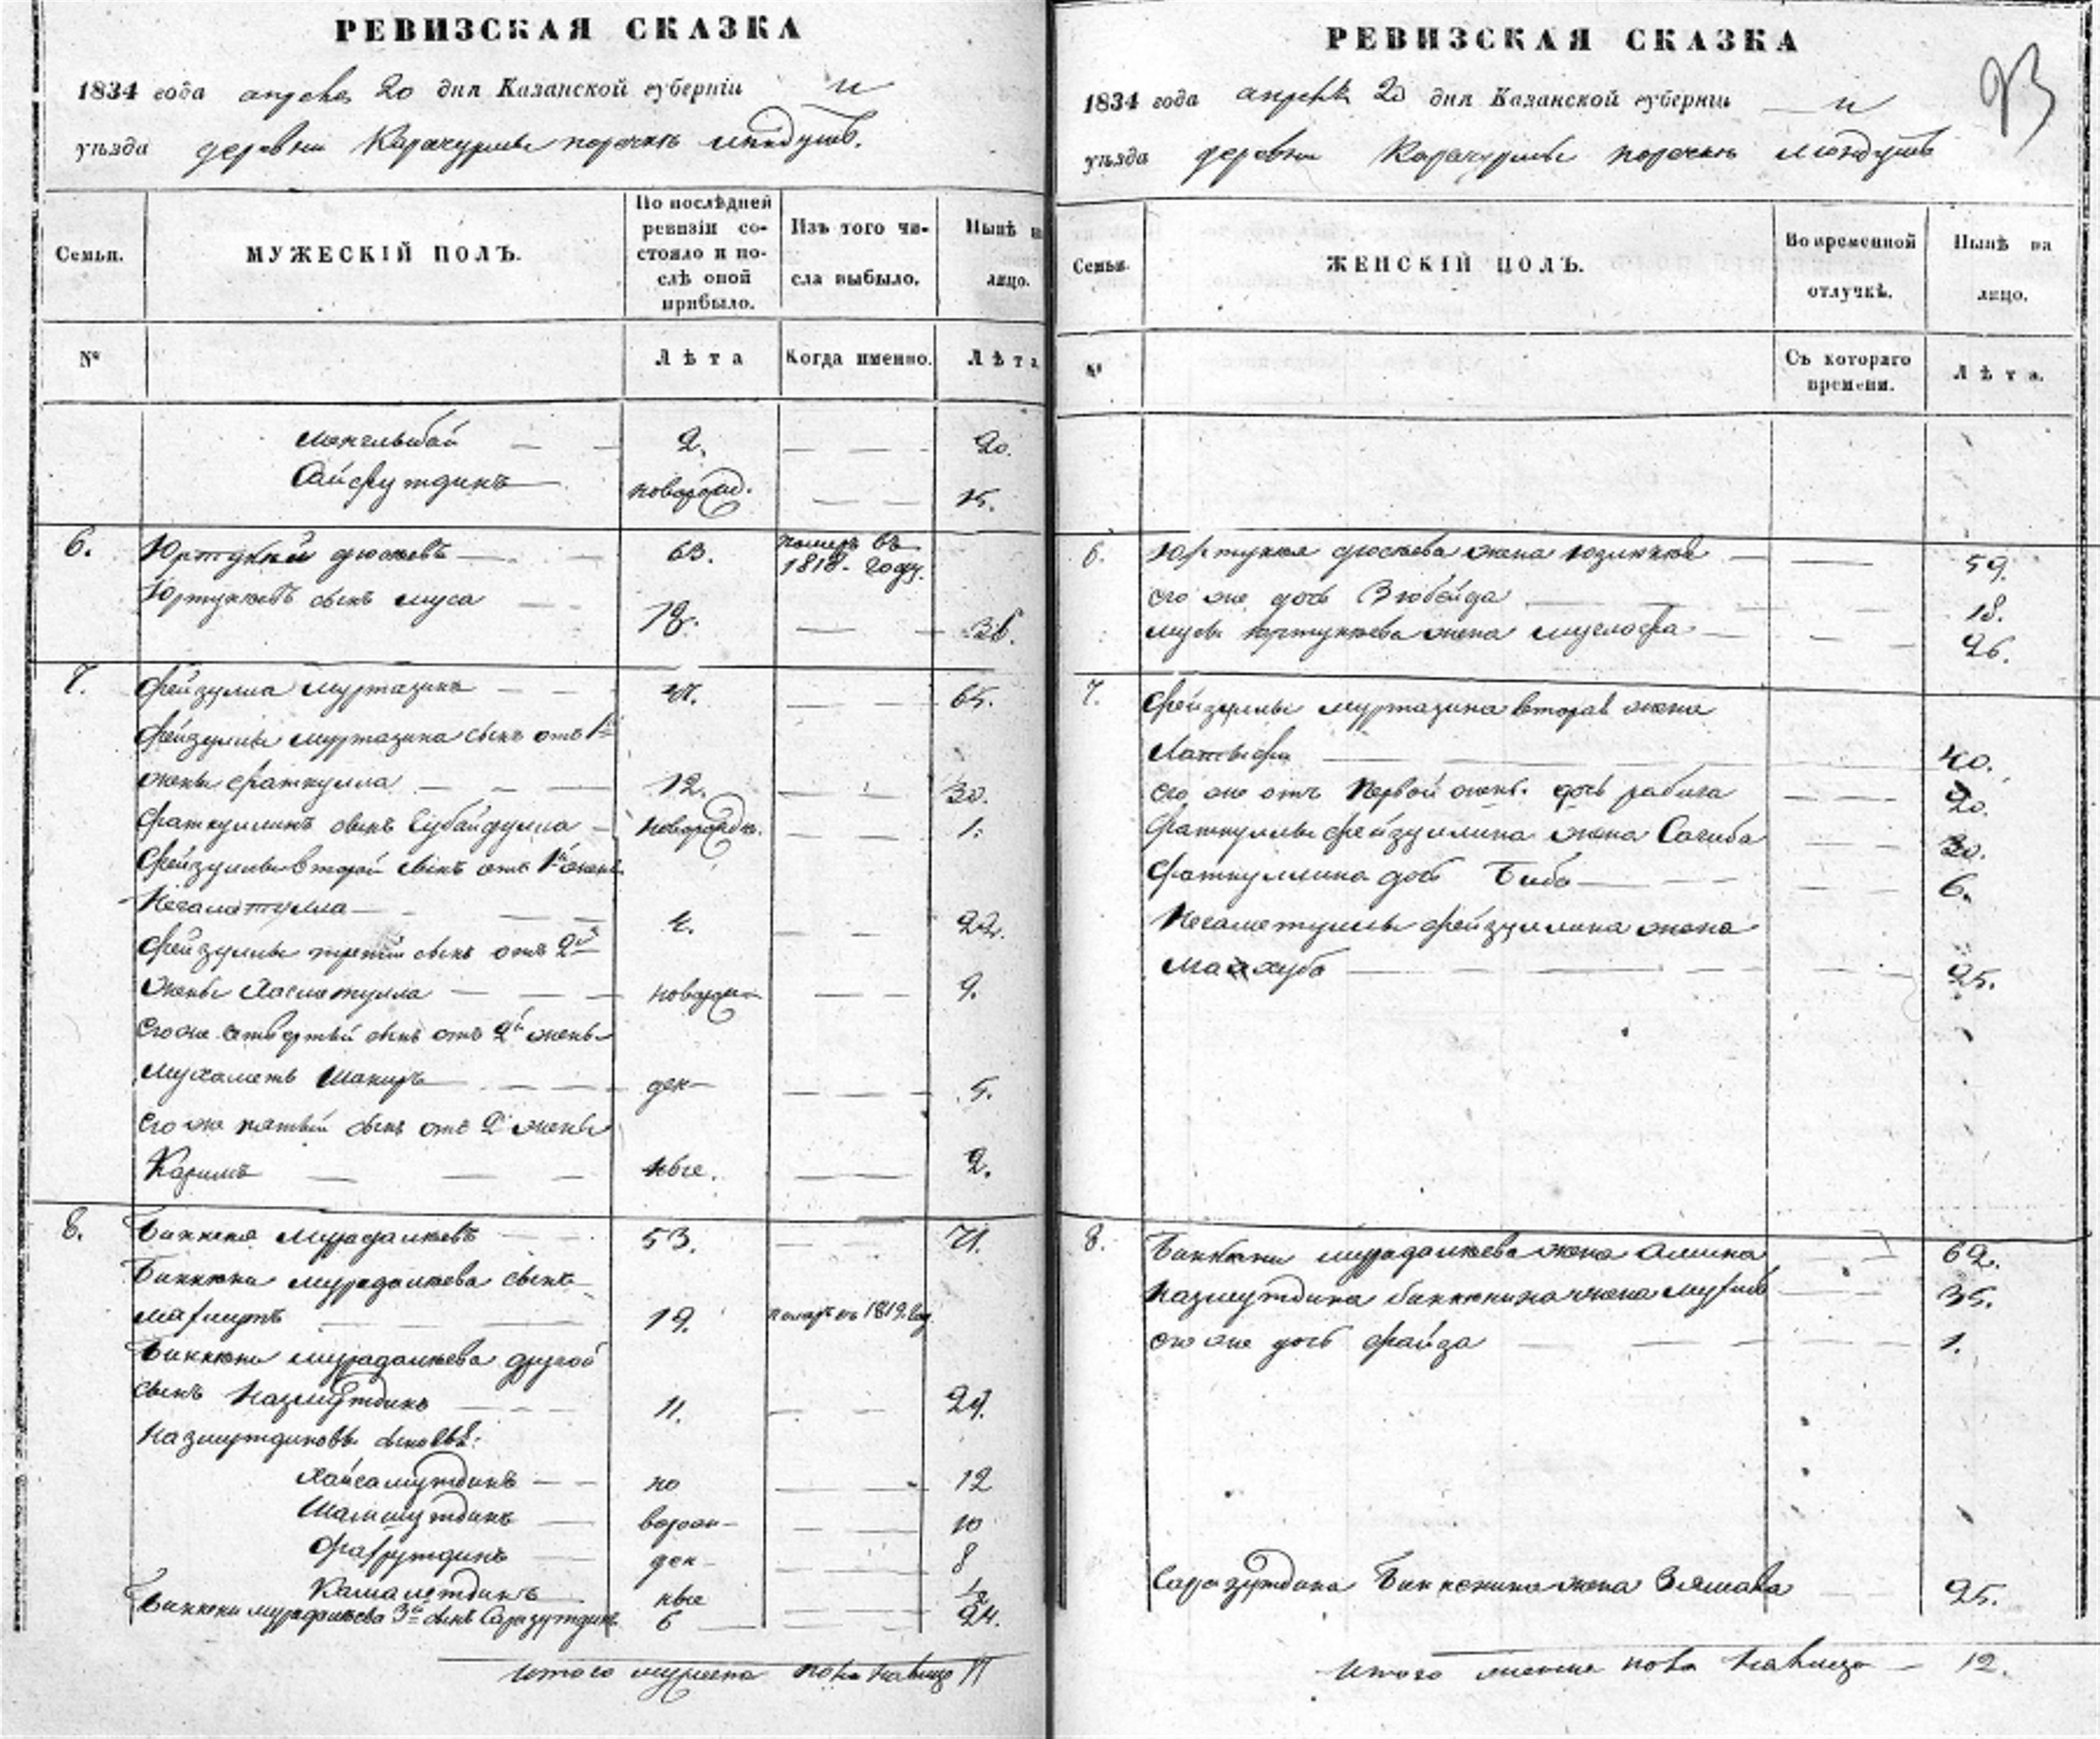 РЕВИЗСКАЯ СКАЗКА
1834 года апреля 20 дня Казанской губерніи и
уѣзда деревни Карачурины поречкѣ
Семьи.
МУЖЕСКІЙ ПОЛЪ.
По послѣдней ревизіи состояло и послѣ оной прибыло.
Изъ того числа выбыло.
Нынѣ на лицо.
№
Лѣта
Когда именно.
Лѣта
Менглыбай 2. 20.
Сайфутдинъ новорожд. 15.
6. Юртукъй 63. померъ въ 1818. году.
Юртукѣевъ сынъ Муса 18. 36.
7. Фейзулла Муртазинъ 47. 65.
Фейзуллы Муртазина сынъ отъ 1й
жены Фаткулла 12. 30.
Фаткуллинъ сынъ Губайдулла новорожден. 1.
Фейзуллы второй сынъ отъ 1й жены
Негаматулла 4. 22.
Фейзуллы третій сынъ отъ 2й
жены Хасматулла новорож 9.
Его же четвертый сынъ отъ 2й жены
Мухаметъ Шакиръ ден 5.
Его же пятый сынъ отъ 2й жены
Каримъ ные. 2.
8. Биккеня Мурадалѣевъ 53. 71.
Биккени Мурадалѣева сынъ
19. померъ въ 1819. год
Биккени Мурадалѣева другой
сынъ Назмутдинъ 11. 29.
Назмутдиновы сыновья:
Хайсамутдинъ но 12
Шамшутдинъ ворож 10
Фахрутдинъ ден 8
Камалетдинъ ные 1/2
Биккени Мурадалѣева 3й сынъ Саразутдинъ 6 24.
Итого мужеска пола налицо 17
РЕВИЗСКАЯ СКАЗКА
93
1834 года апреля 20 дня Казанской губерніи и
уѣзда деревни Карачурины поречкѣ
Семьи.
ЖЕНСКІЙ ПОЛЪ.
Во временной отлучкѣ.
Нынѣ на лицо.
№
Съ котораго времени.
Лѣта.
6. Юртукѣя жена 59.
его же дочь Зюбейда 18.
Мусы Юртукѣева жена 26.
7. Фейзуллы Муртазина вторая жена
Латыфа 40.
Его же отъ первой жены дочь Рабига 20.
Фаткуллы Фейзуллина жена Сагиба 30.
Фаткуллина дочь Биби 6.
Негаметуллы Фейзуллина жена
Махуба 25.
8. Биккени Мурадалѣева жена Амина 62.
Назмутдина Биккенина жена 35.
Его же дочь Файза 1.
Саразутдина Биккенина жена 25.
Итого женска пола налицо 12.